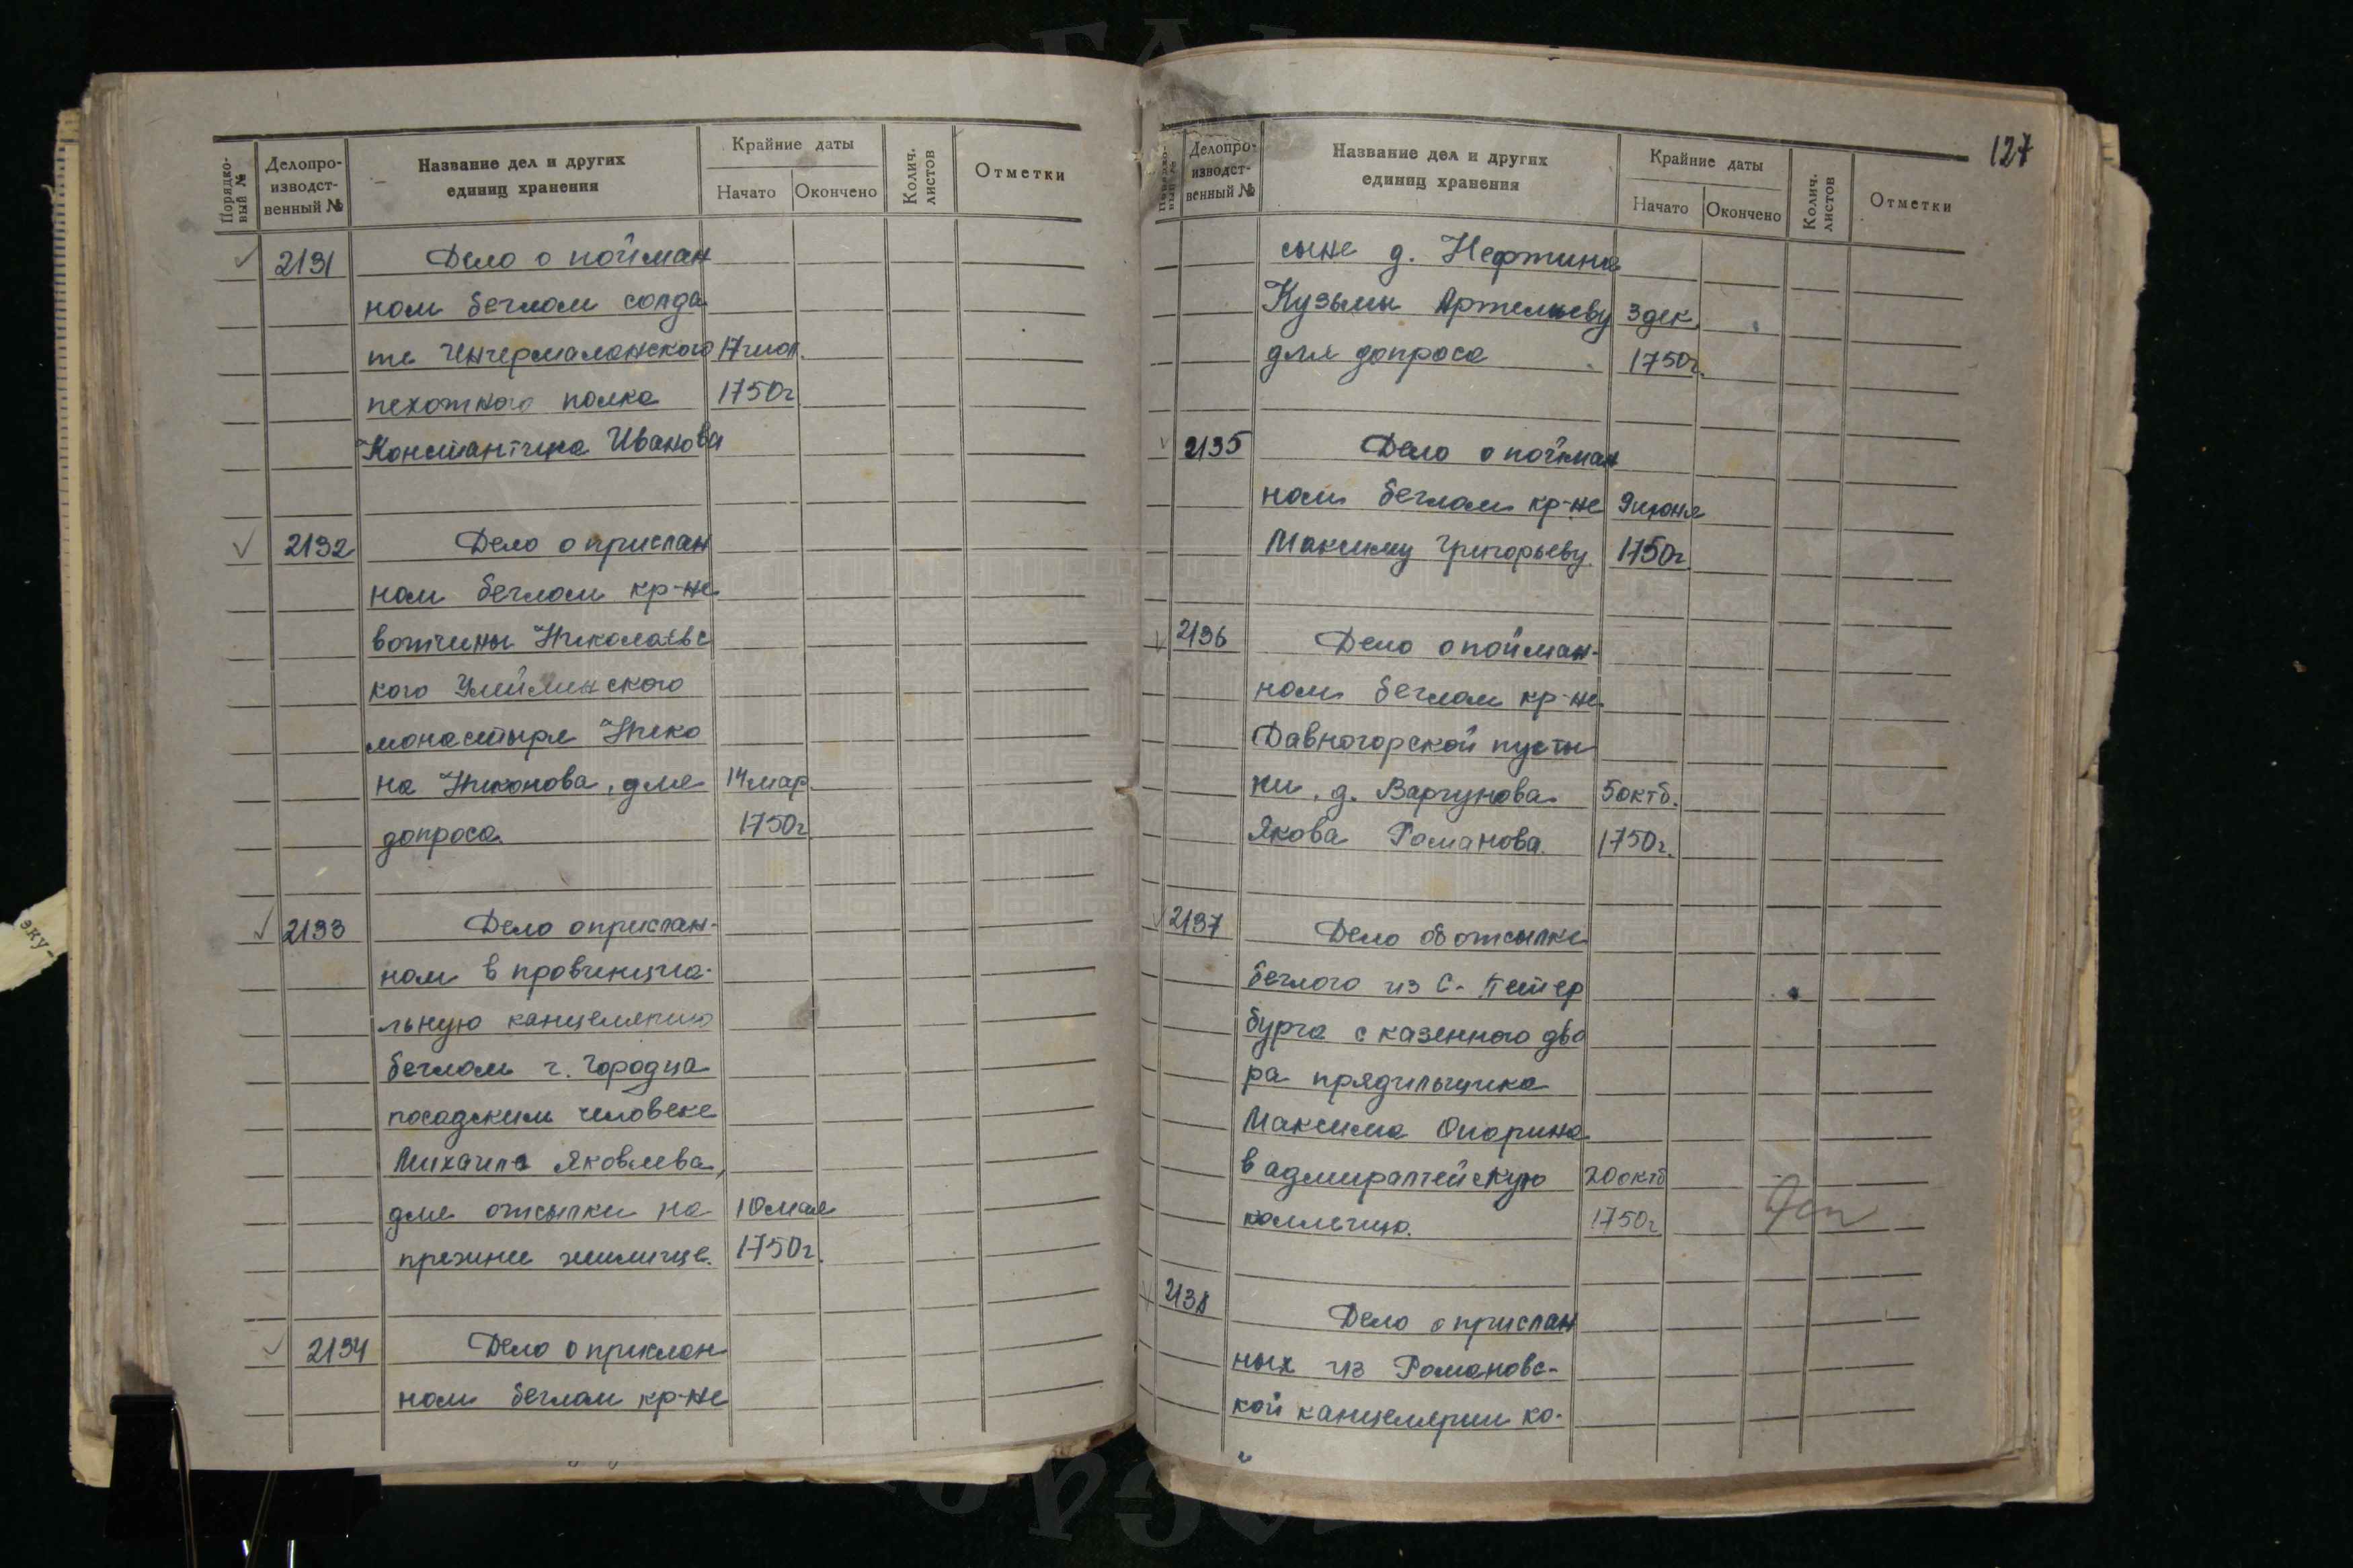 Порядко-
вый №
Делопро-
изводст-
венный №
Название дел и других
единиц хранения
Крайние даты
Начато
Окончено
Колич.
листов
Отметки
2131 Дело о пойман
ном беглом солда
те Ингермаланского 17 июл.
пехотного полка 1750г
Константина Иванова
2132 Дело о прислан
ном беглом кр-не
вотчины Николаевс
кого Улейминского
монастыря Нико
на Никонова, для 14 мар.
допроса 1750г
2133 Дело о прислан-
ном в провинциа-
льную канцелярию
беглом г. Городца
посадским человеке
Михаила Яковлева,
для отсылки на 10 мая
прежнее жилище. 1750г.
2134 Дело о прислан
ном беглом кр-не
127
Порядко-
вый №
Делопро-
изводст-
венный №
Название дел и других
единиц хранения
Крайние даты
Начато
Окончено
Колич.
листов
Отметки
сыне д. Нефтина
Кузьмы Артемьеву 3 дек.
для допроса 1750г.
2135 Дело о пойман
ном беглом кр-не 9 июня
Максиму Григорьеву. 1750г
2136 Дело о пойман-
ном беглом кр-не
Давногорской пусты
ни, д. Варгунова 5 октб.
Якова Романова. 1750г.
2137 Дело об отсылке
беглого из С.-Петер
бурга с казенного дво
ра прядильщика
Максима Опарина
в адмиралтейскую 20 октб
коллегию. 1750г
2138 Дело о прислан
ных из Романовс-
кой канцелярии ко-
эку-